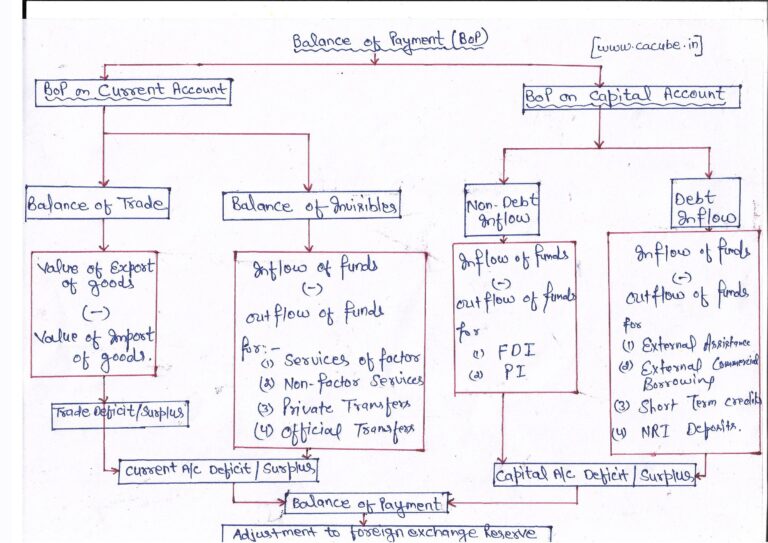 Balance of Payment (BoP)
[www.cacube.in]
BoP on Current Account
BoP on Capital Account
Balance of Trade
Balance of Invisibles
Non-Debt
Inflow
Debt
Inflow
Value of Export
of goods
(-)
Value of Import
of goods.
Inflow of funds
(-)
outflow of funds
for:-
(1) Services of factor
(2) Non-factor Services
(3) Private Transfers
(4) Official Transfers
Inflow of funds
(-)
outflow of funds
for
(1) FDI
(2) PI
Inflow of funds
(-)
outflow of funds
for
(1) External Assistance
(2) External Commercial
Borrowing
(3) Short Term credits
(4) NRI Deposits.
Trade Deficit/Surplus
Current A/c Deficit/Surplus
Capital A/c Deficit/Surplus
Balance of Payment
Adjustment to foreign exchange Reserve